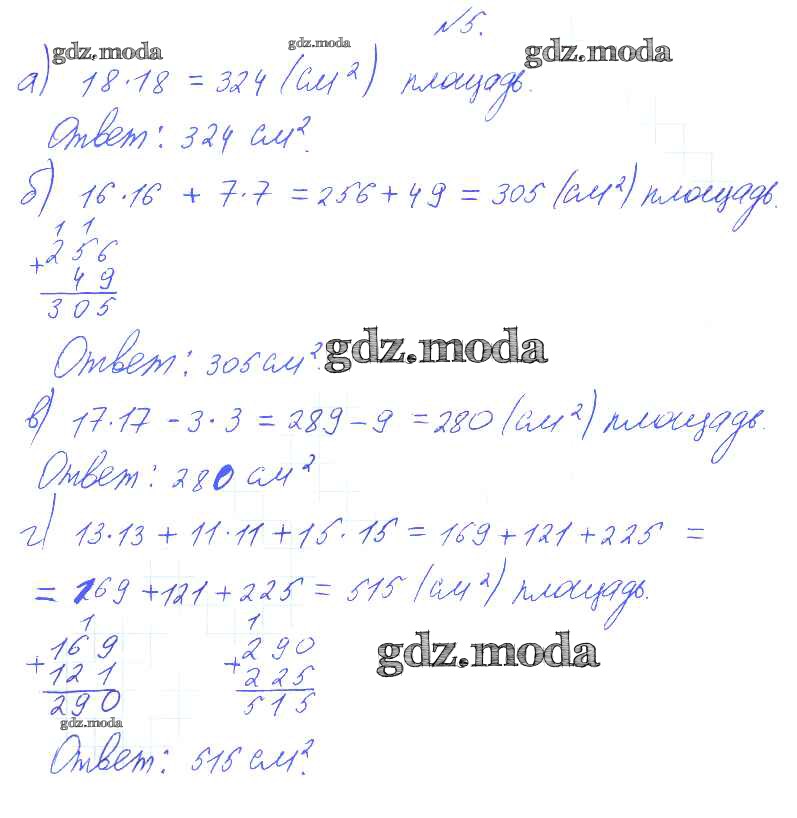 №5.
gdz.moda gdz.moda gdz.moda
а) 18·18 = 324 (см²) площадь.
Ответ: 324 см².
б) 16·16 + 7·7 = 256 + 49 = 305 (см²) площадь.
1 1
+ 256
49
305
Ответ: 305 см².
gdz.moda
в) 17·17 - 3·3 = 289 - 9 = 280 (см²) площадь.
Ответ: 280 см²
г) 13·13 + 11·11 + 15·15 = 169 + 121 + 225 =
= 169 + 121 + 225 = 515 (см²) площадь.
1 1
+ 169 + 290
121 225
290 515
gdz.moda
gdz.moda
Ответ: 515 см².